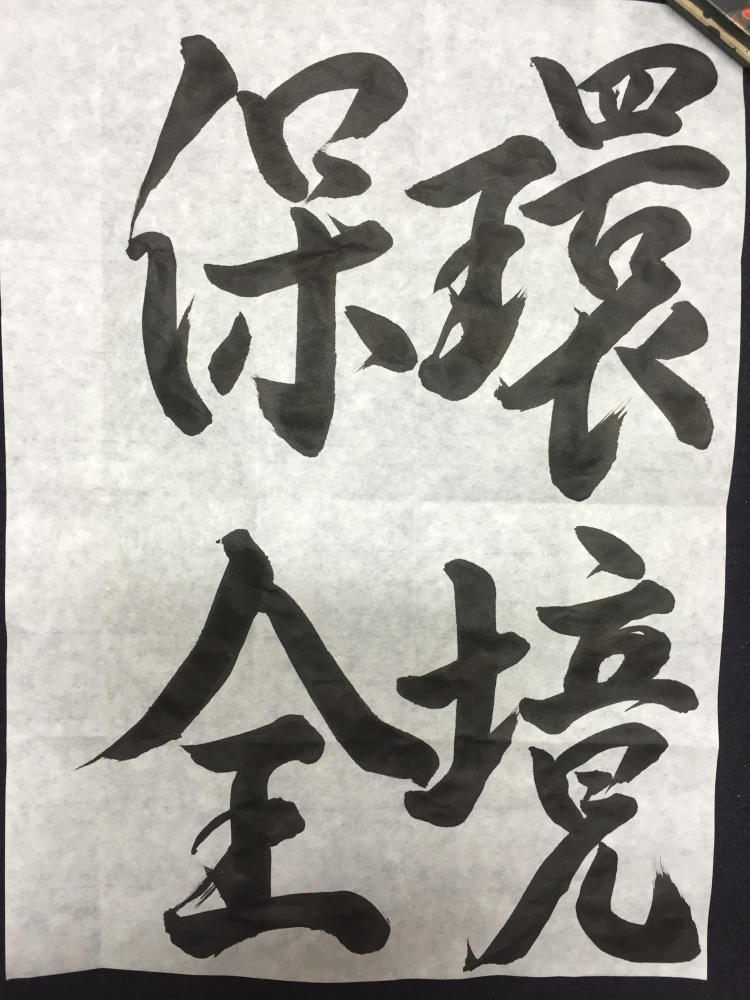 環境
保全